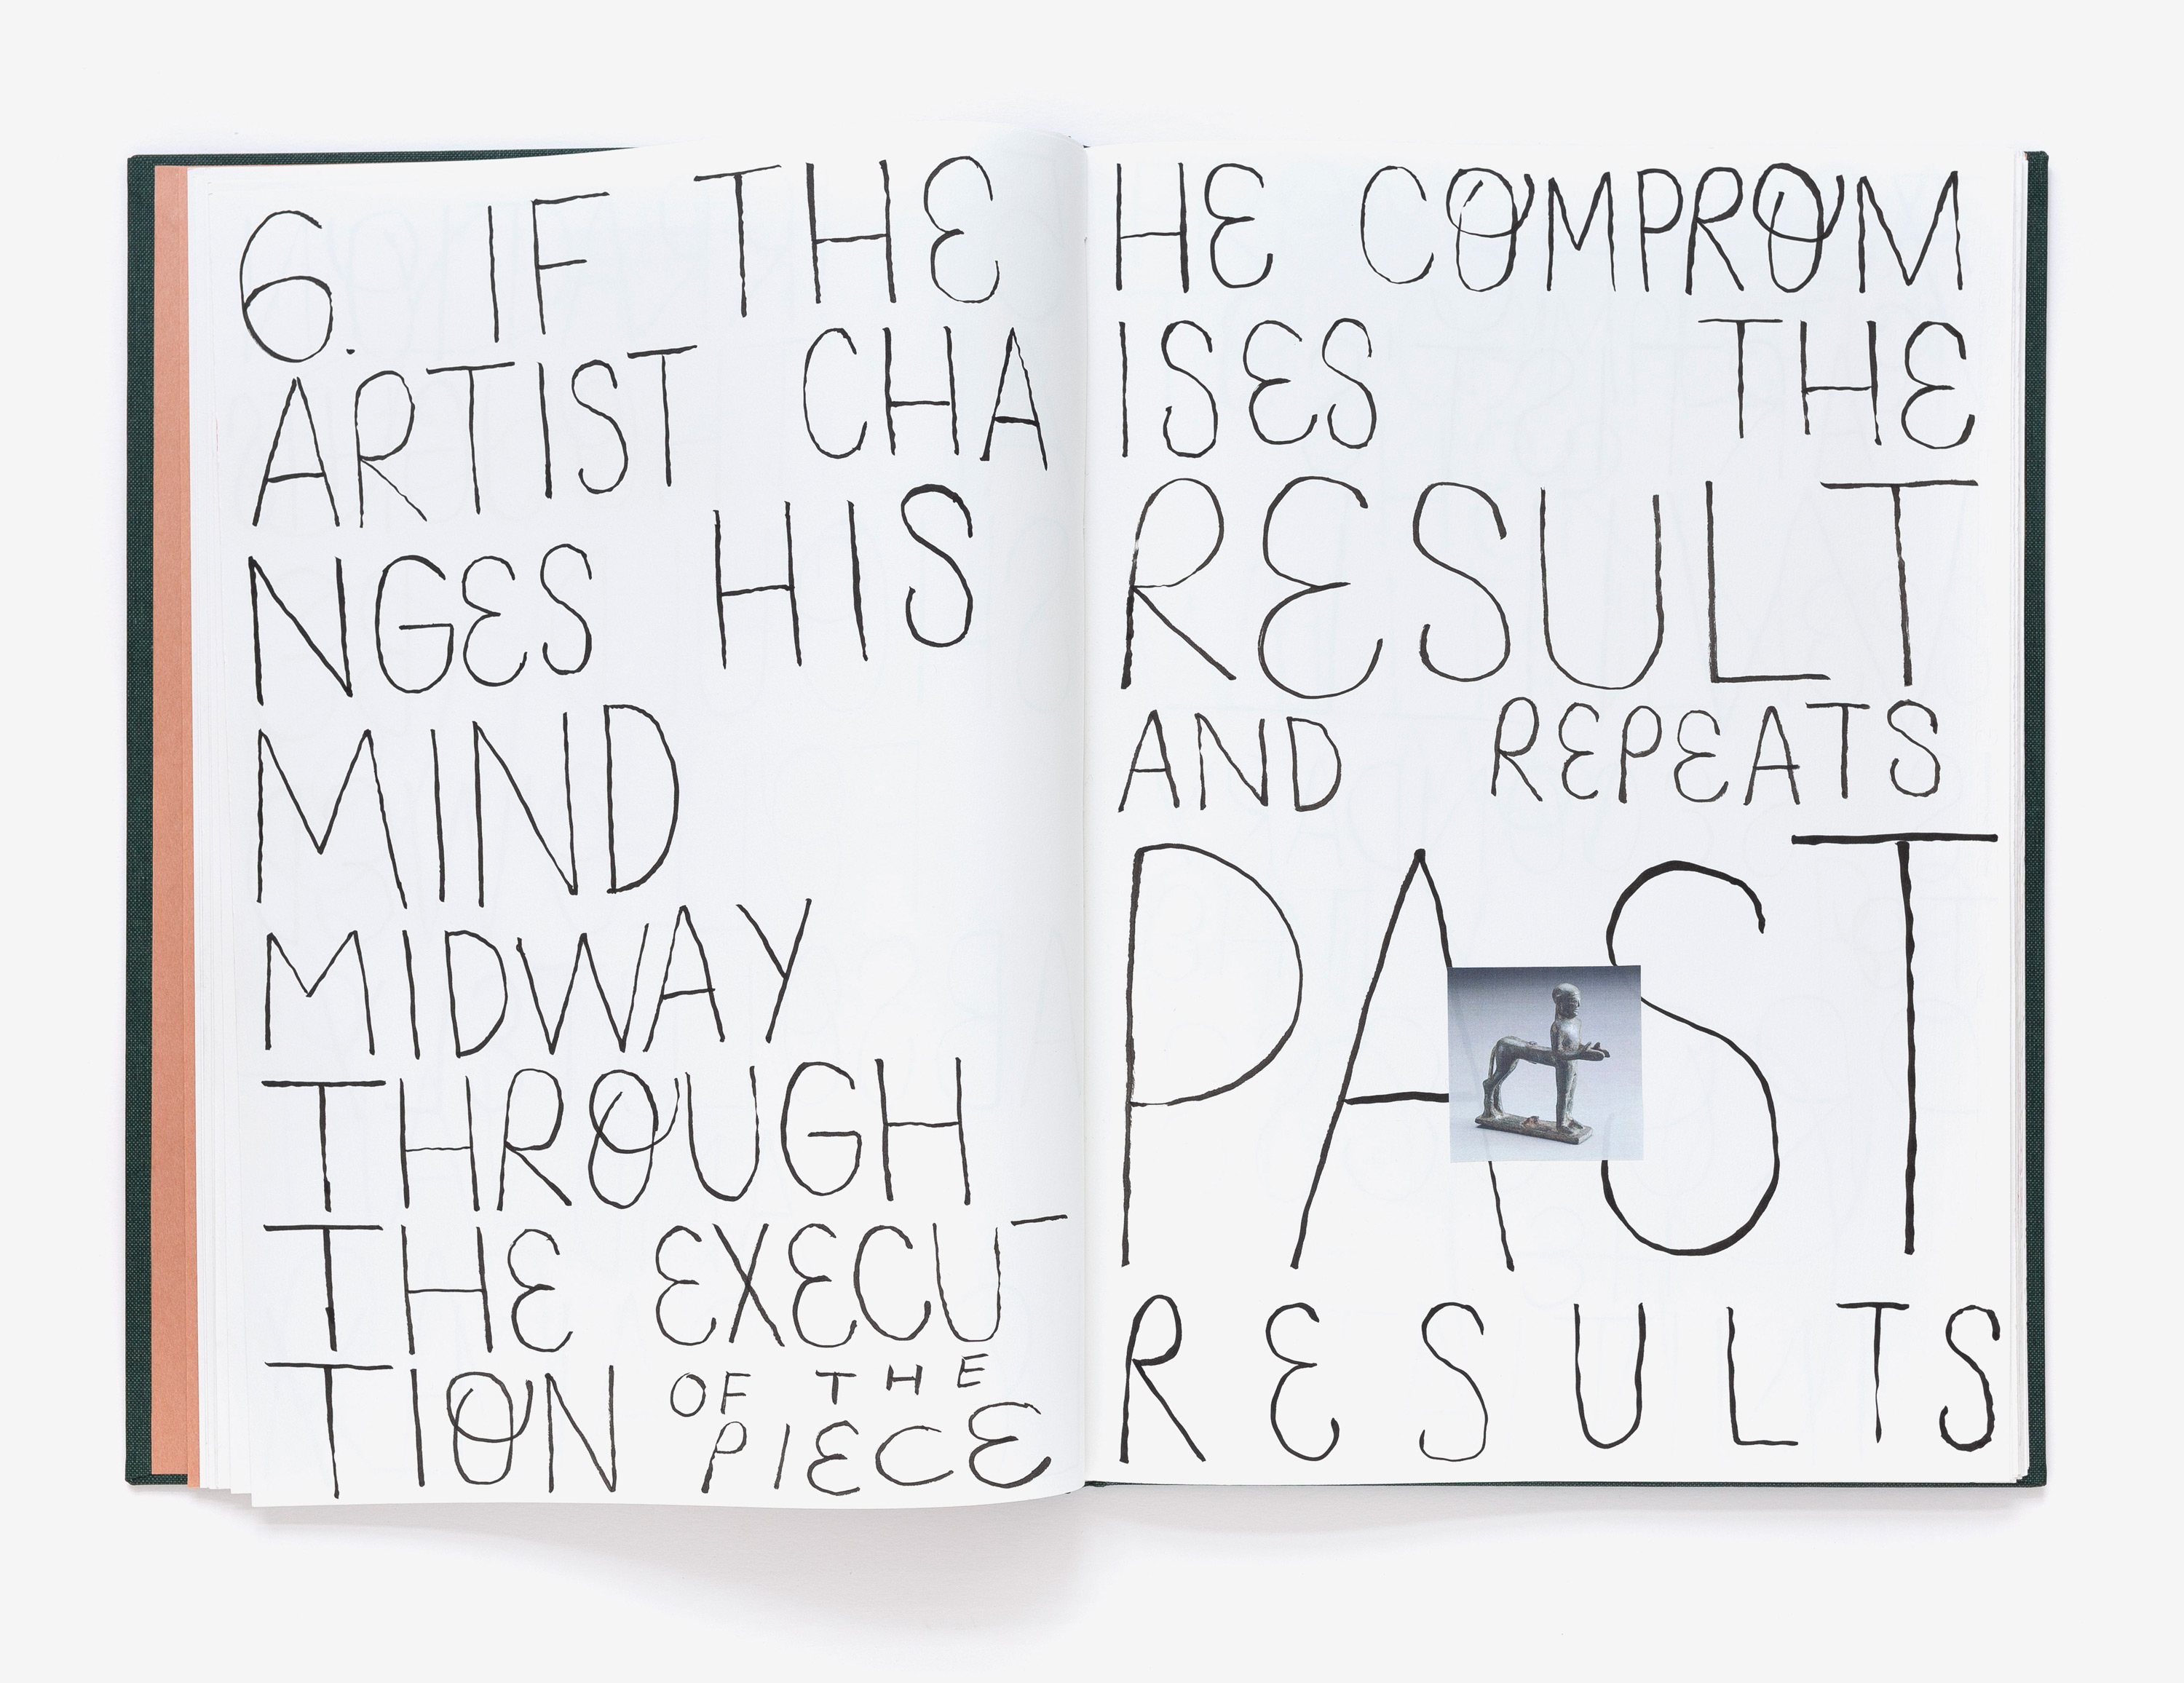 6. IF THE
ARTIST CHA
NGES HIS
MIND
MIDWAY
THROUGH
THE EXECU
TION OF THE
PIECE
HE COMPROM
ISES THE
RESULT
AND REPEATS
PAST
RESULTS